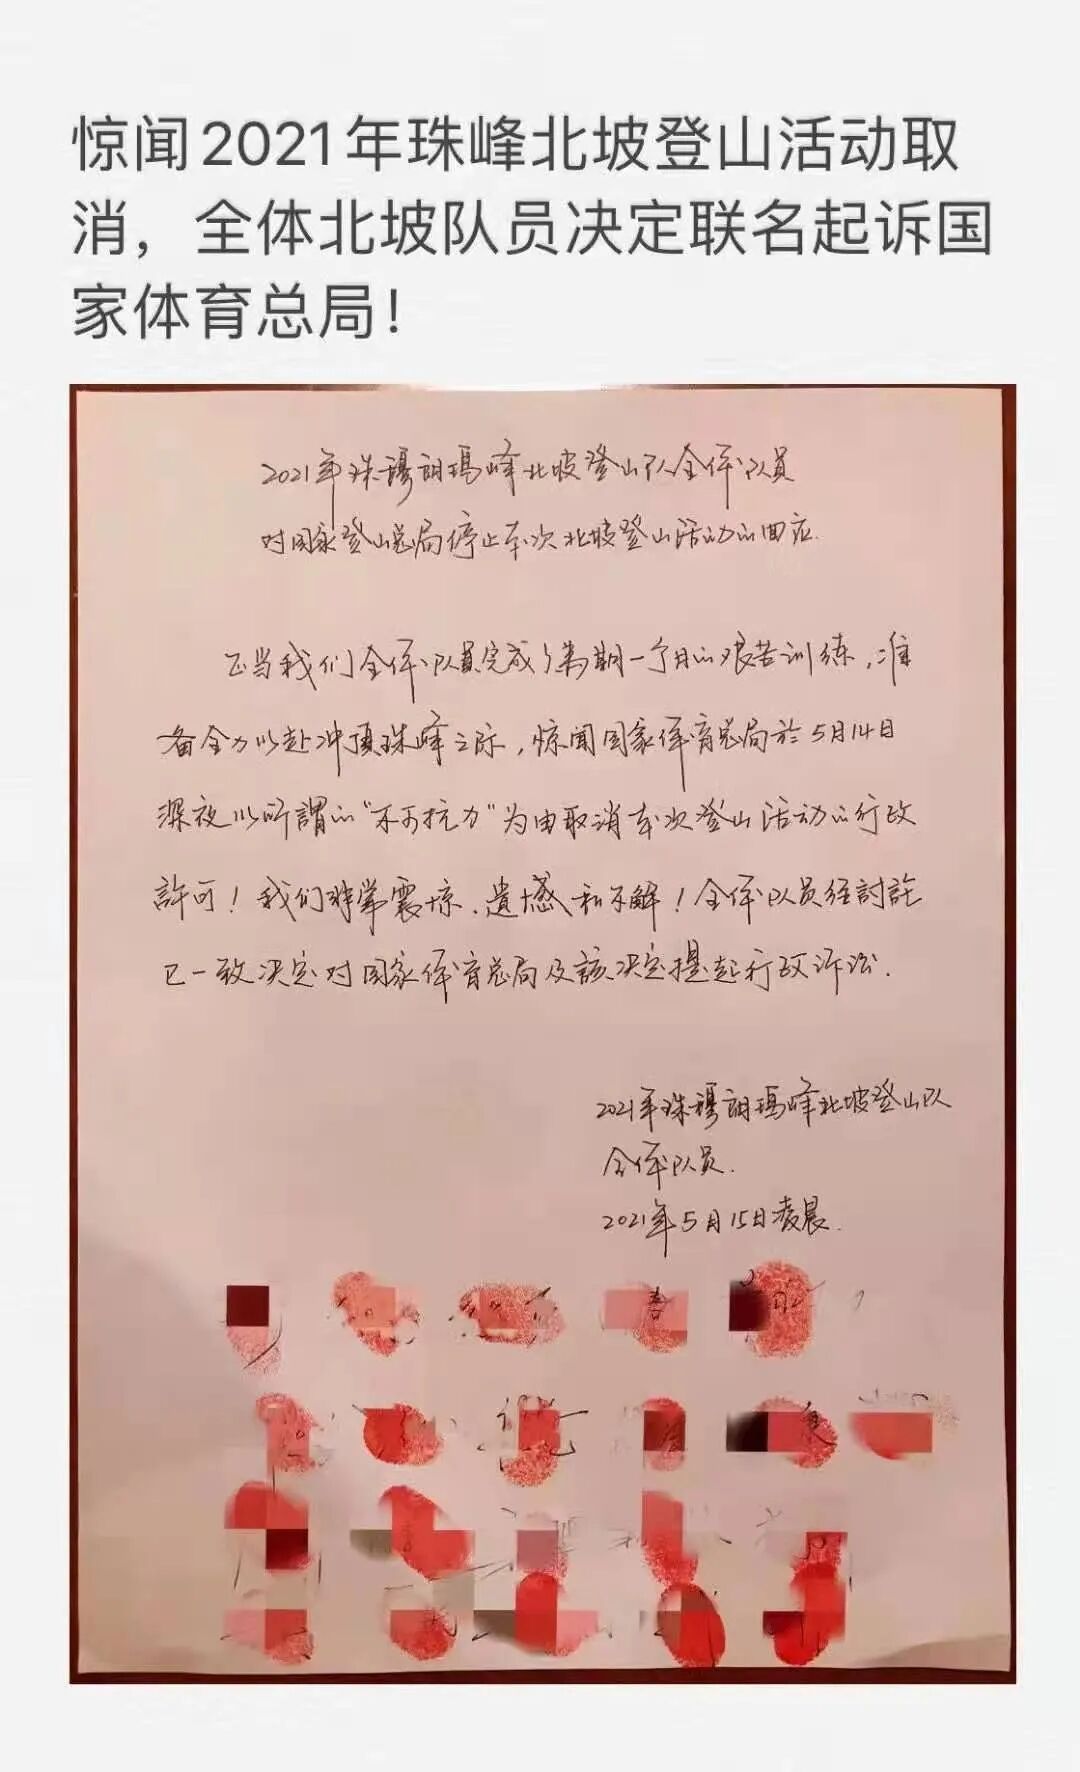 惊闻2021年珠峰北坡登山活动取
消，全体北坡队员决定联名起诉国
家体育总局！
2021年珠穆朗瑪峰北坡登山队全体队员
对国家登山总局停止本次北坡登山活动的回应.
正当我们全体队员完成了为期一个月的艰苦训练，准
备全力以赴冲顶珠峰之际，惊闻国家体育总局於5月14日
深夜以所謂的“不可抗力”为由取消本次登山活动的行政
許可！我们非常震惊、遺憾和不解！全体队员经討論
已一致决定对国家体育总局及該决定提起行政诉讼.
2021年珠穆朗瑪峰北坡登山队
全体队员.
2021年5月15日凌晨.